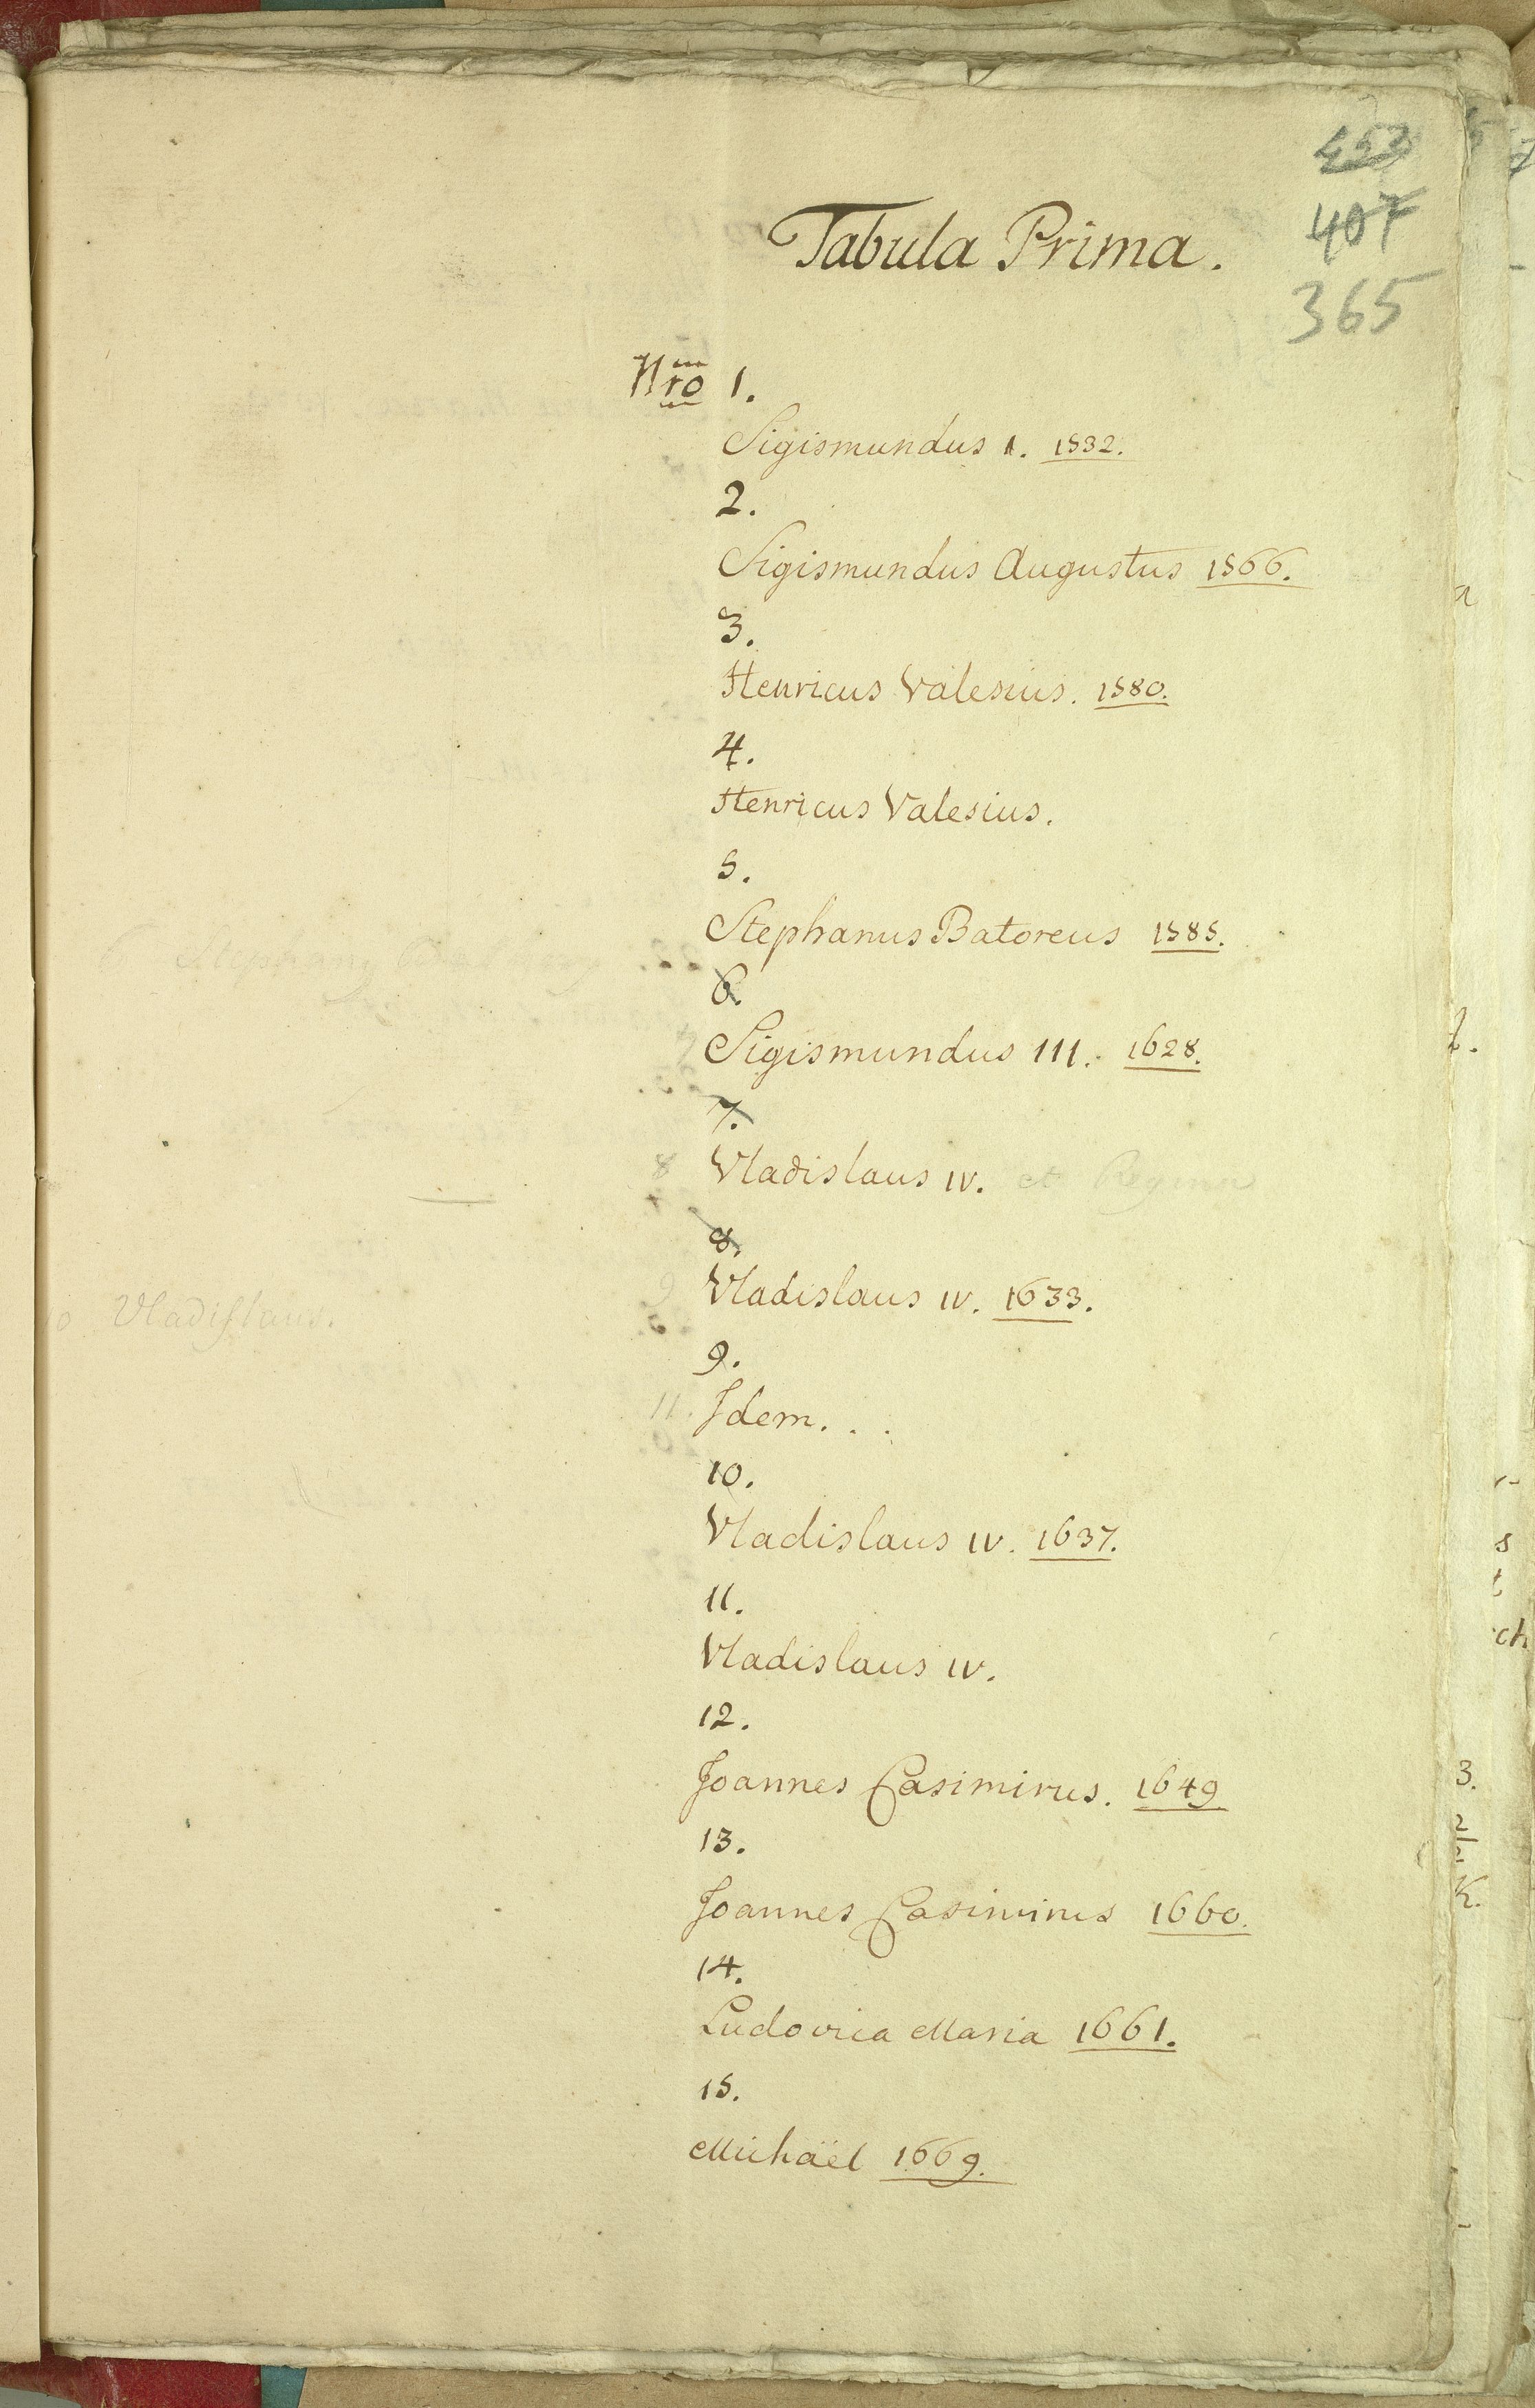 407
365
Tabula Prima.
Nro 1.
Sigismundus 1. 1532.
2.
Sigismundus Augustus 1566.
3.
Henricus Valesius. 1580.
4.
Henricus Valesius.
5.
Stephanus Batoreus 1585.
6.
Sigismundus III. 1628.
7.
8 Vladislaus IV. et Regina
8.
9 Vladislaus IV. 1633.
10 Vladislaus.
9.
11. Idem. . .
10.
Vladislaus IV. 1637.
11.
Vladislaus IV.
12.
Joannes Casimirus. 1649
13.
Joannes Casimirus 1660.
14.
Ludovica Maria 1661.
15.
Michaël 1669.